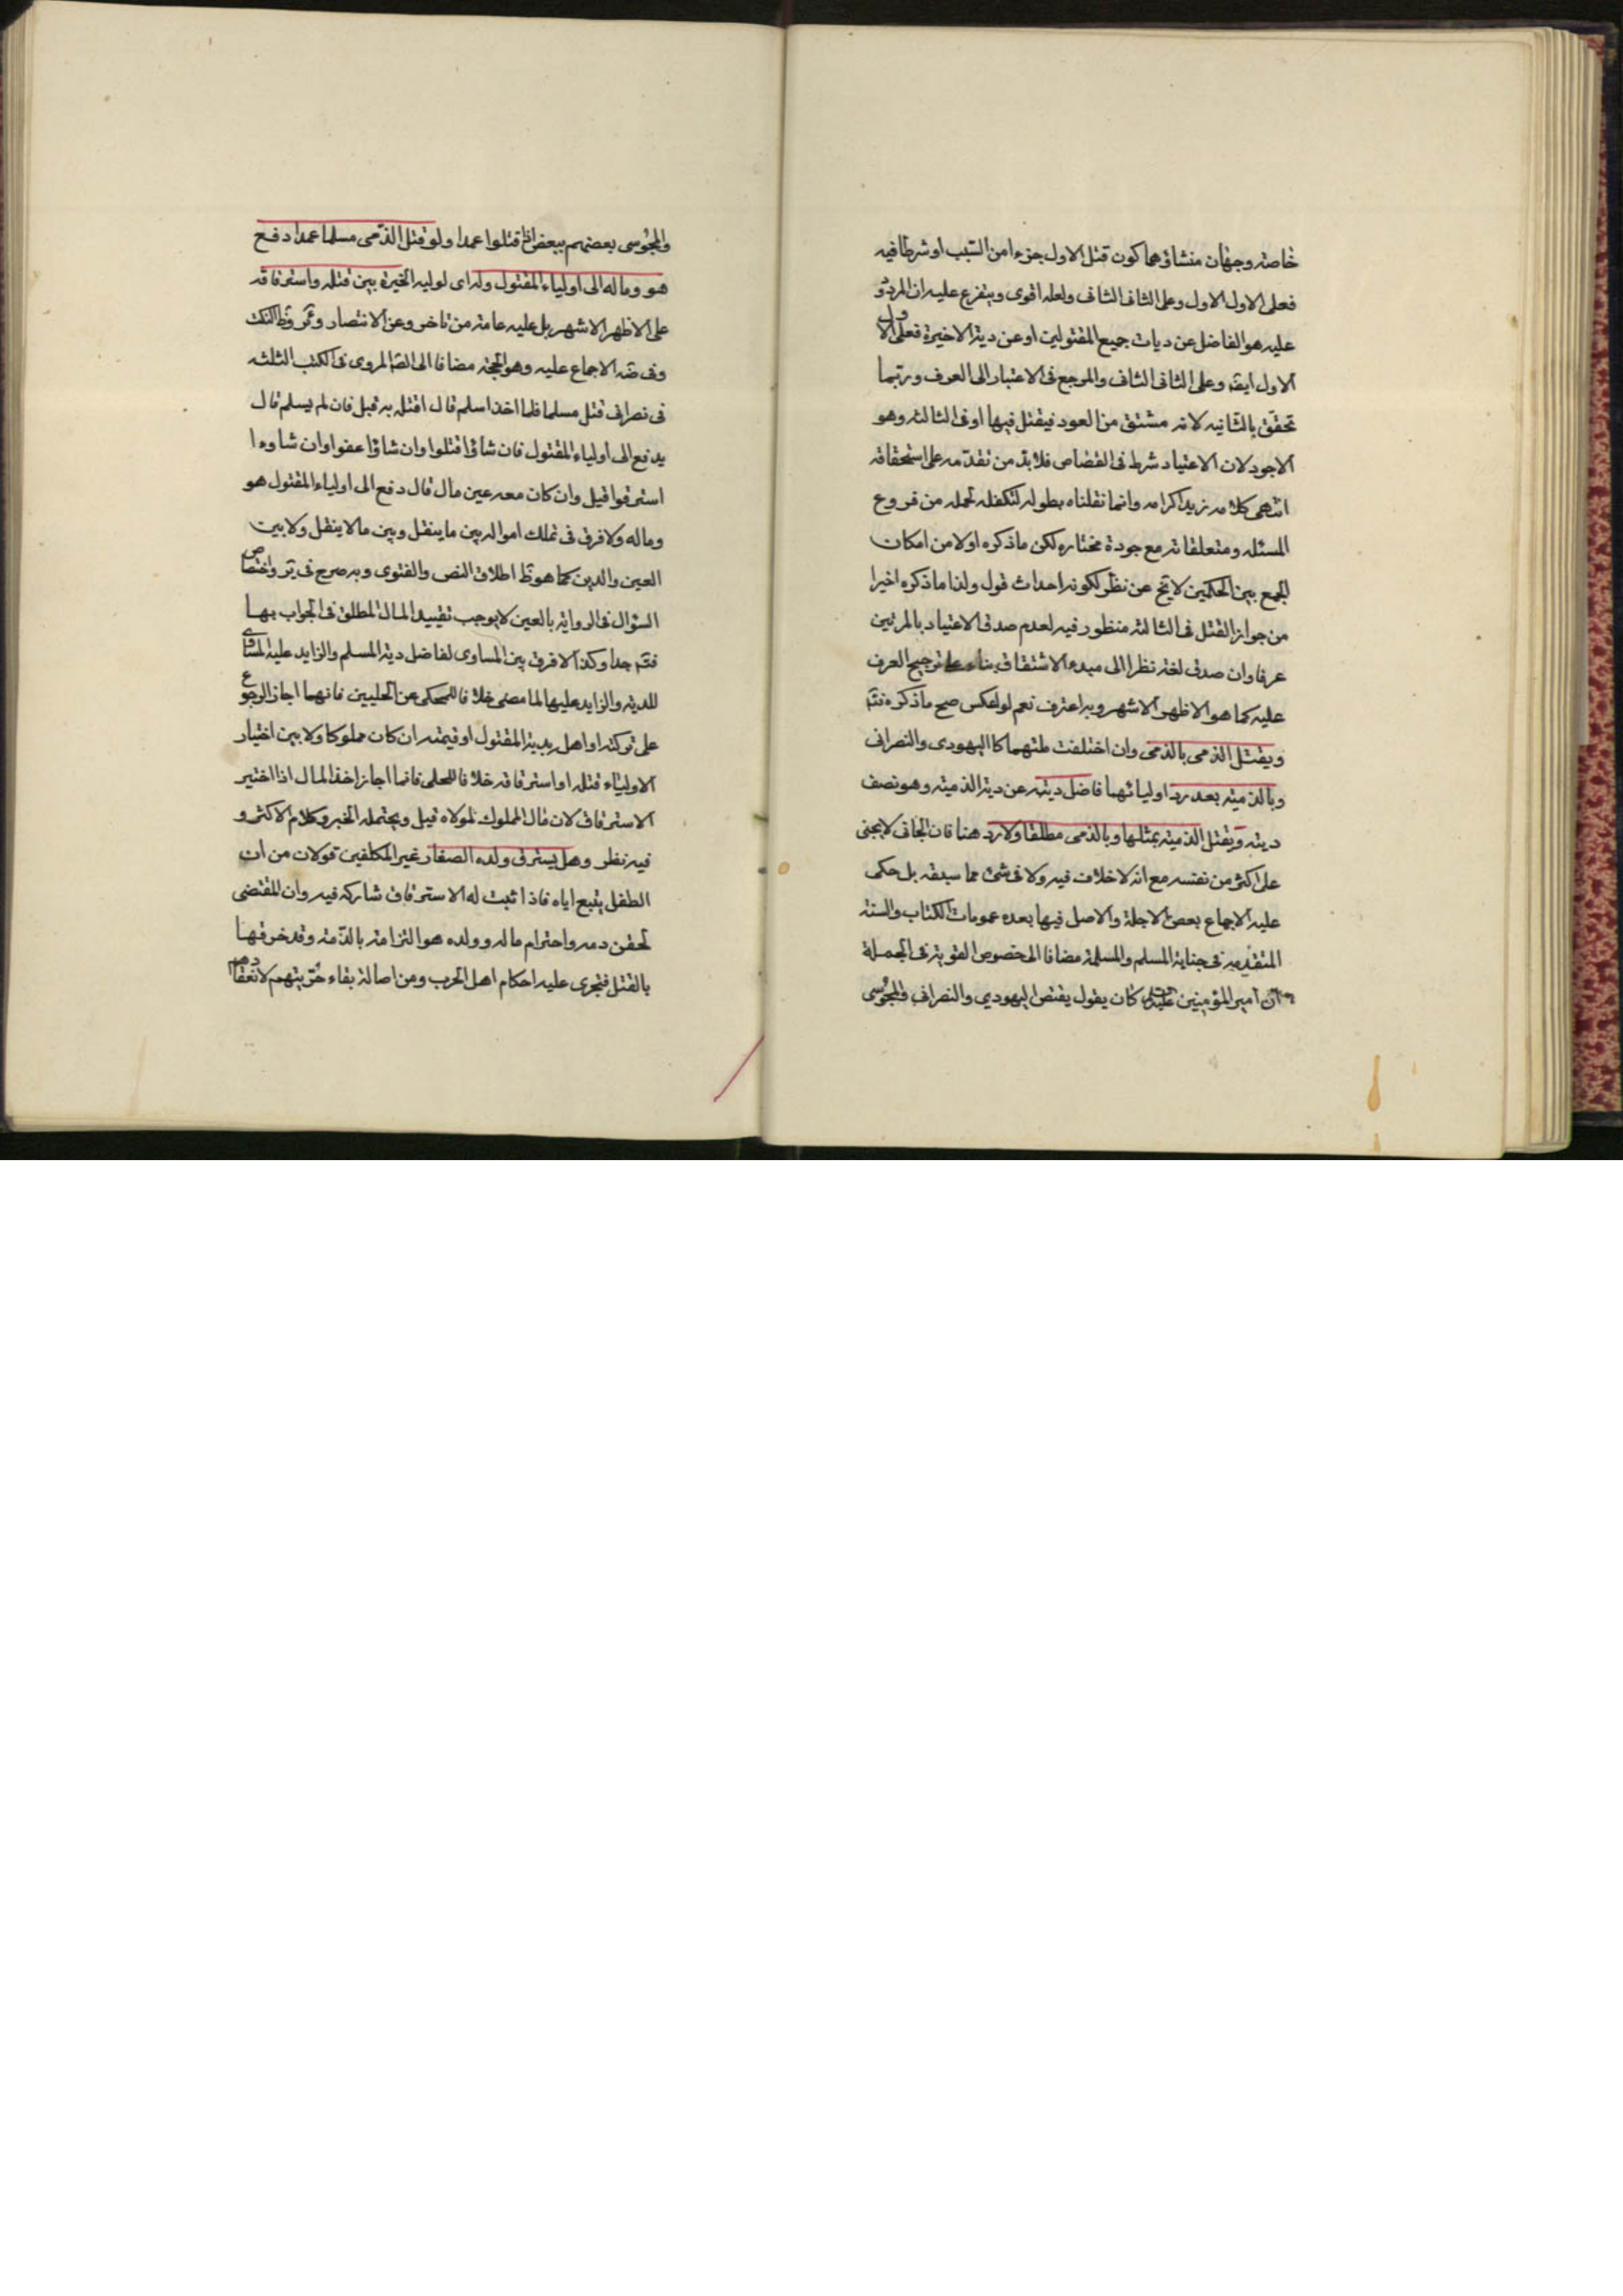 خاصة وجهان منشاؤهما كون قتل الاول جزءا من السبب او شرطا فيه
فعلى الاول الاول وعلى الثانى الثانى ولعله اقوى ويتفرع عليه ان المردود
عليه هو الفاضل عن ديات جميع المقتولين او عن دية الاخيرة فعلى الاول
الاول ايضه وعلى الثانى الثانى والمرجع فى الاعتبار الى العرف وربّما
تحقّق بالثانيه لانه مشتق من العود فيقتل فيها او فى الثالثه وهو
الاجود لان الاعتياد شرط فى القصاص فلا بد من تقدّمه على استحقاقه
انتهى كلامه زيد اكرامه وانما نقلناه بطوله لتكفله لجمله من فروع
المسئله ومتعلقاته مع جودة مختاره لكن ماذكره اولا من امكان
الجمع بين الحكمين لا يخ عن نظر لكونه احداث قول ولذا ماذكره اخيرا
من جواز القتل فى الثالثه منظور فيه لعدم صدق الاعتياد بالمرتين
عرفا وان صدق لغة نظرا الى مبدء الاشتقاق بناء على ترجيح العرف
عليه كما هو الاظهر الاشهر وبه اعترف نعم لو انعكس صح ماذكره فتم
ويقتل الذمى بالذمى وان اختلفت ملتهما كاليهودى والنصرانى
وبالذمية بعد رد اوليائهما فاضل ديته عن دية الذمية وهو نصف
ديته ويقتل الذمية بمثلها وبالذمى مطلقا ولا رد هنا فان الجانى لا يجنى
على اكثر من نفسه مع انه لا خلاف فيه ولا فى شئ مما سبقه بل حكى
عليه الاجماع بعض الاجلة والاصل فيها بعده عمومات الكتاب والسنة
المتقدمه فى جناية المسلم والمسلمة مضافا الى خصوص القوية فى الجملة
ان امير المؤمنين كان يقول يقتص اليهودي والنصرانى والمجوسى
والمجوسى بعضهم ببعض اذا قتلوا عمدا ولو قتل الذّمى مسلما عمدا دفع
هو وماله الى اولياء المقتول وله اى لوليه الخيرة بين قتله واسترقاقه
على الاظهر الاشهر بل عليه عامة من تاخر وعن الانتصار وئر وظ النكت
وفى ضه الاجماع عليه وهو الحجة مضافا الى الصّ المروى فى الكتب الثلثه
فى نصرانى قتل مسلما فلما اخذ اسلم قال اقتله به قيل فان لم يسلم قال
يدفع الى اولياء المقتول فان شاؤا قتلوا وان شاؤا عفوا وان شاوءا
استرقوا قيل وان كان معه عين مال قال دفع الى اولياء المقتول هو
وماله ولا فرق فى تملك امواله بين ما ينقل وبين ما لا ينقل ولا بين
العين والدين كما هو ظ اطلاق النص والفتوى وبه صرح فى ير واختصاص
السؤال فى الرواية بالعين لا يوجب تقييد المال المطلق فى الجواب بها
فتم جدا وكذا لا فرق بين المساوى لفاضل دية المسلم والزايد عليه المساوى
للدية والزايد عليها لما مضى خلافا للمحكى عن الحلبيين فانهما اجازا الرجوع
على تركته او اهله بدية المقتول او قيمته ان كان مملوكا ولا بين اختيار
الاولياء قتله او استرقاقه خلافا للحلى فانما اجاز اخذ المال اذا اختير
الاسترقاق لان مال المملوك لمولاه قيل ويحتمله الخبر وكلام الاكثر و
فيه نظر وهل يسترق ولده الصغار غير المكلفين قولان من ان
الطفل يتبع اياه فاذا ثبت له الاسترقاق شاركه فيه وان المقتضى
لحقن دمه واحترام ماله وولده هو التزامه بالذّمة وقد خرقها
بالقتل فتجرى عليه احكام اهل الحرب ومن اصالة بقاء حرّيتهم لانعقادهم